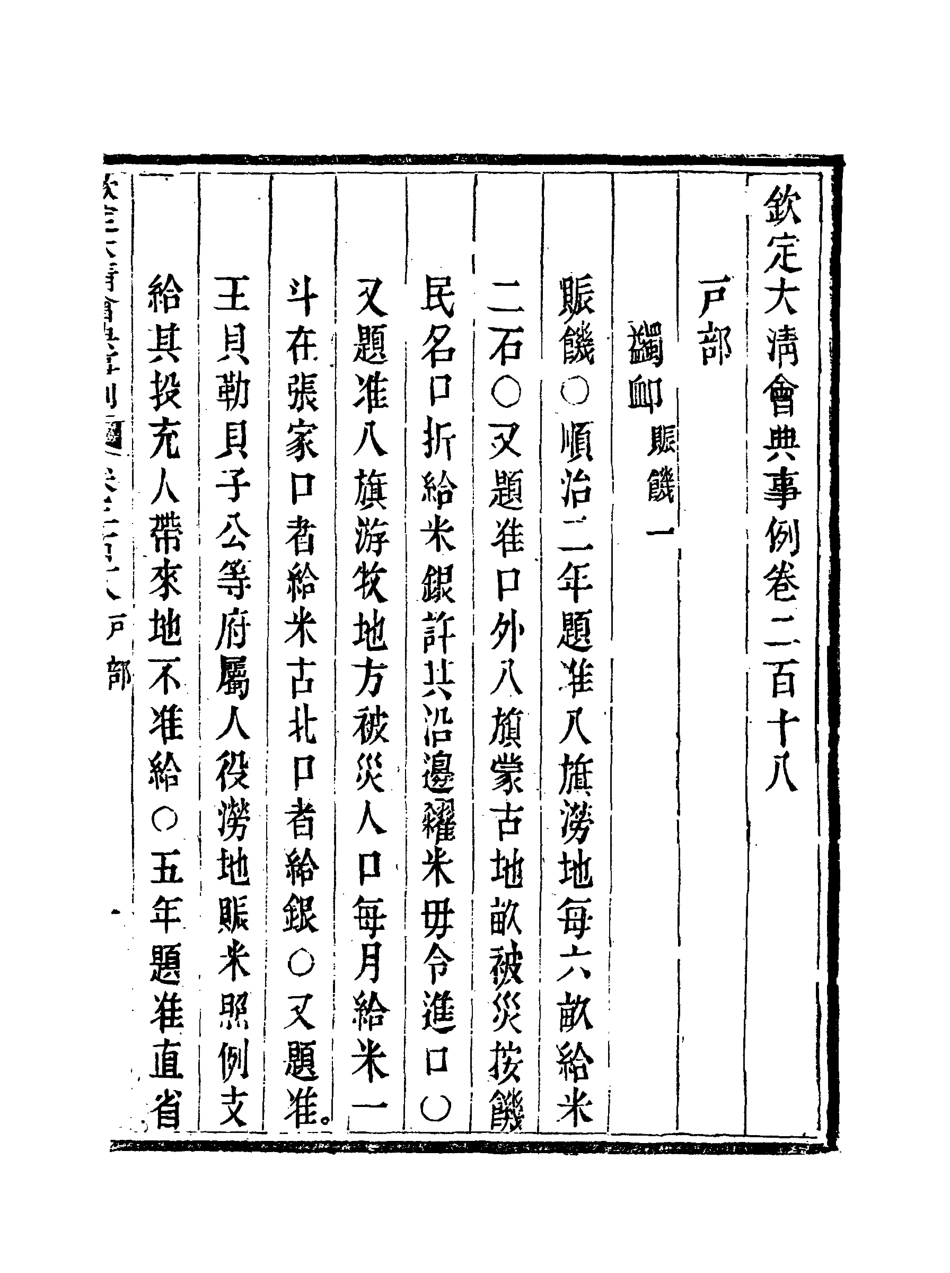 欽定大淸會典事例卷二百十八
戸部
蠲䘏賑饑一
賑饑○順治二年題准八旗澇地每六畝給米
二石○又題准口外八旗蒙古地畝被災按饑
民名口折給米銀許其沿邊糴米毋令進口○
又題准八旗游牧地方被災人口每月給米一
斗在張家口者給米古北口者給銀○又題准。
王貝勒貝子公等府屬人役澇地賑米照例支
給其投充人帶來地不准給○五年題准直省
欽定大清會典事例 戸部 一